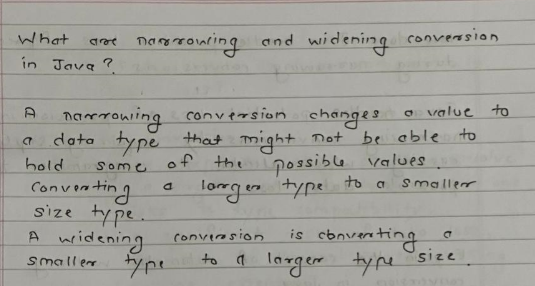 What are narrowing and widening conversion
in Java?
A narrowing conversion changes a value to
a data type that might not be able to
hold some of the possible values.
Converting a larger type to a smaller
size type.
A widening conversion is converting a
smaller type to a larger type size.